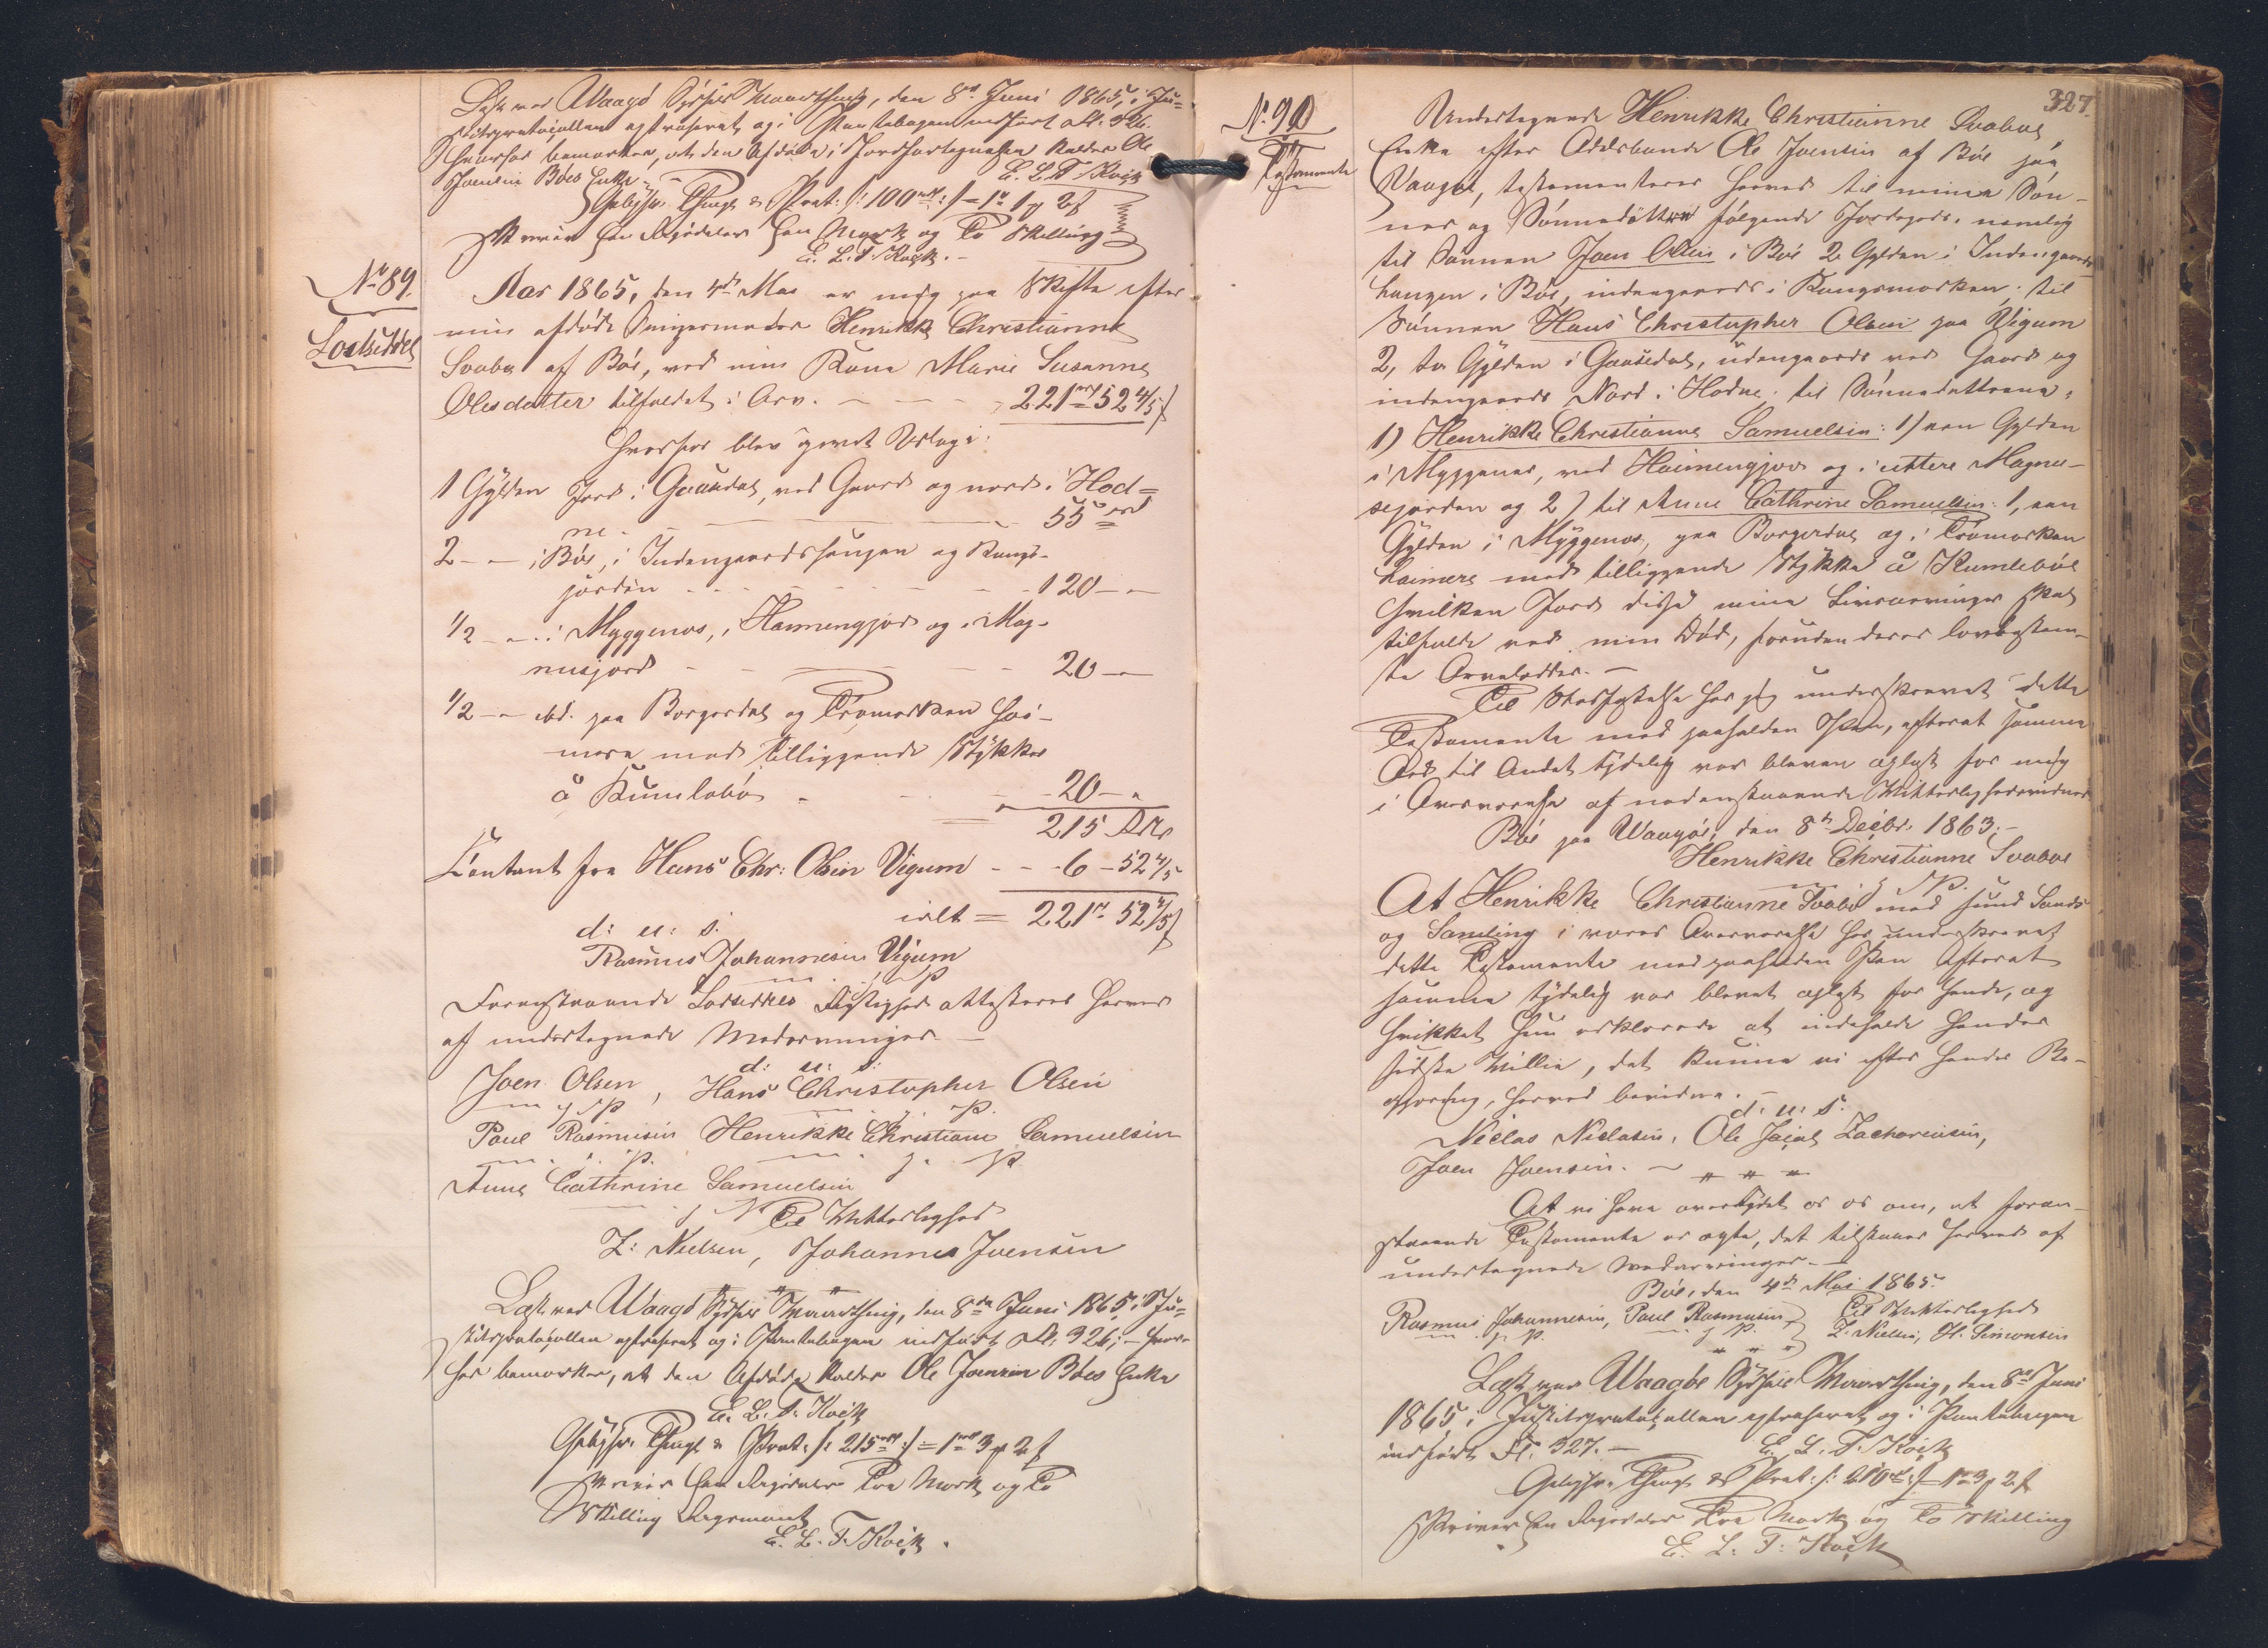 Læst ved Waagø Syssels Vaarthing, den 8de Juni 1865, i Ju-
stitsprotocollen extraheret og i Pantebogen indført Fl. 326.
hvorhos bemærkes, at den Afdøde i Jordfortegnelsen kaldes Ole
Joensen Bøes Enke.
E. L. T. Kock
Gebyhr. Thingl & Prot: /: 100 rd :/ = 1 rd 1 ℳ 2 ß
skriver Een Rigsdaler Een Mark og To Skilling
E. L. T. Kock.
No 89.
Lodseddel
Aar 1865, den 4de Mai er mig paa Skifte efter
min afdøde Svigermoder Henrikke Christianne
Svabo af Bøe, ved min Kone Marie Susanne
Olesdatter tilfaldet i Arv. - - - 221 rd 52 4/5 ß
hvorfor blev gjort Udlæg i:
1 Gylden Jord i Gaasedal, ved Gaard og nord i Hod-
ne. - - - 55 rd
2 - - i Bøe, i Indengaardshaugen og Kongs-
jorden - - - 120 - -
1/2 - - i Myggenæs, i Heimengjord og i Mag-
nusjord - - - 20 - -
1/2 - - ibd. paa Borgerdal og Trømarken hei-
mere med tilliggende Stykker
å Kumlebø - - - 20 - -
215 Rdr
Contant fra Hans Chr: Olsen Vigum - - 6 - 52 4/5
ialt = 221 rd 52 4/5 ß
d: u: s.
Rasmus Johannesen Vigum
m. f. P.
Foranstaaende Lodseddels Rigtighed attesteres herved
af undertegnede Medarvinger. -
d: u: s:
Joen Olsen, Hans Christopher Olsen
m. f. P. m. f. P.
Paul Rasmusen Henrikke Christiane Samuelsen
m. f. P. m. f. P.
Anne Cathrine Samuelsen
m. f. P.
Til Vitterlighed
Z: Nielsen, Johannes Joensen
Læst ved Waagø Syssels Vaarthing, den 8de Juni 1865, i Ju-
stitsprotocollen extraheret og i Pantebogen indført Fl. 326; - hvor-
hos bemærkes, at den Afdøde kaldes Ole Joensen Bøes Enke
E. L. T. Kock
Gebyhr. Thingl & Prot: /: 215 rd :/ = 1 rd 3 ℳ 2 ß
skriver Een Rigsdaler Tre Mark og To
Skilling Rigsmønt
E. L. T. Kock.
327.
No. 90
Testamente
Undertegnede Henrikke Christianne Svaboe,
Enke efter Odelsbonde Ole Joensen af Bøe paa
Vaagøe, testamenterer herved til mine Søn-
ner og Sønnedøttre følgende Jordegods, nemlig
til Sønnen Joen Olsen i Bøe 2 Gylden i Indengaards
haugen i Bøe, indengaards i Kongsmarken; til
Sønnen Hans Christopher Olsen paa Vigum
2, to Gylden i Gaasedal, udengaards ved Gaard og
indengaards Nord i Hodne; til Sønnedøttrene:
1) Henrikke Christianne Samuelsen: 1/ een Gylden
i Myggenæs, ved Heimengjord og i uttere Magnu-
sejorden og 2) til Anne Cathrine Samuelsen: 1, een
Gylden i Myggenæs, paa Borgerdal og i Trømarken
heimere med tilliggende Stykke å Kumlebøe
hvilken Jord disse mine Livsarvinger skal
tilfalde ved min Død, foruden deres lovbestem-
te Arvelodder. -
Til Stadfæstelse har jeg underskrevet dette
Testamente med paaholden Pen, efterat samme
Ord til Andet tydelig var bleven oplæst for mig
i Overværelse af nedenstaaende Vitterlighedsvidner
Bøe paa Waagøe, den 8de Decbr. 1863. -
Henrikke Christianne Svaboe
m. f. P.
At Henrikke Christianne Svabo med sund Sands
og Samling i vores Overværelse har underskrevet
dette Testamente med paaholden Pen efterat
samme tydelig var blevet oplæst for hende, og
hvilket hun erklærede at indeholde hendes
sidste Villie, det kunne vi efter hendes Be-
gjæring, herved bevidne. -
d: u: s.
Niclas Niclasen, Ole Jacob Zachariasen,
Joen Joensen. -
At vi have overtydet os os om, at foran-
staaende Testamente er ægte, det tilstaaes herved af
undertegnede Medarvinger. -
Bøe, den 4de Mai 1865.
Rasmus Johannesen, Paul Rasmusen Til Vitterlighed
m. f. P. m. f. P. Z. Nielsen, H. Simonsen
Læst ved Waagøe Syssels Vaarthing, den 8de Juni
1865, i Justitsprotocollen extraheret og i Pantebogen
indført Fl. 327. -
E. L. T. Kock
Gebyhr. Thingl & Prot: /: 210 rd :/ = 1 rd 3 ℳ 2 ß
skriver Een Rigsdaler Tre Mark og To Skilling
E. L. T. Kock